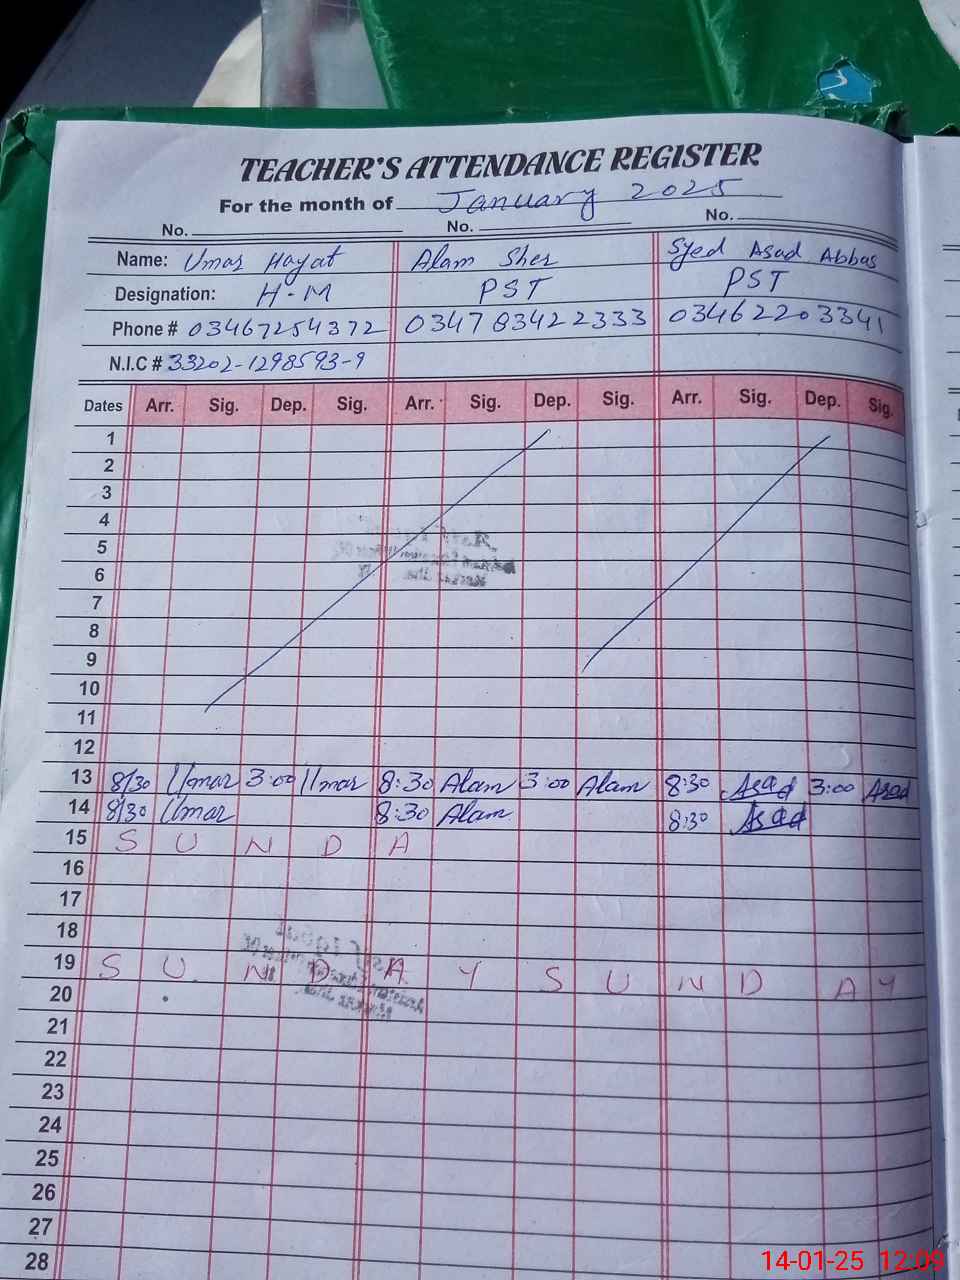 TEACHER'S ATTENDANCE REGISTER
For the month of January 2025
No. No. No.
Name: Umar Hayat Alam Sher Syed Asad Abbas
Designation: H-M PST PST
Phone # 03467254372 034783422333 03462203341
N.I.C # 33202-1298593-9
Dates Arr. Sig. Dep. Sig. Arr. Sig. Dep. Sig. Arr. Sig. Dep. Sig.
1
2
3
4
5
6
7
8
9
10
11
12
13 8/30 Umar 3:00 Umar 8:30 Alam 3:00 Alam 8:30 Asad 3:00 Asad
14 8/30 Umar 8:30 Alam 8:30 Asad
15 S U N D A
16
17
18
19 S U N D A Y S U N D A Y
20
21
22
23
24
25
26
27
28
14-01-25 12:09